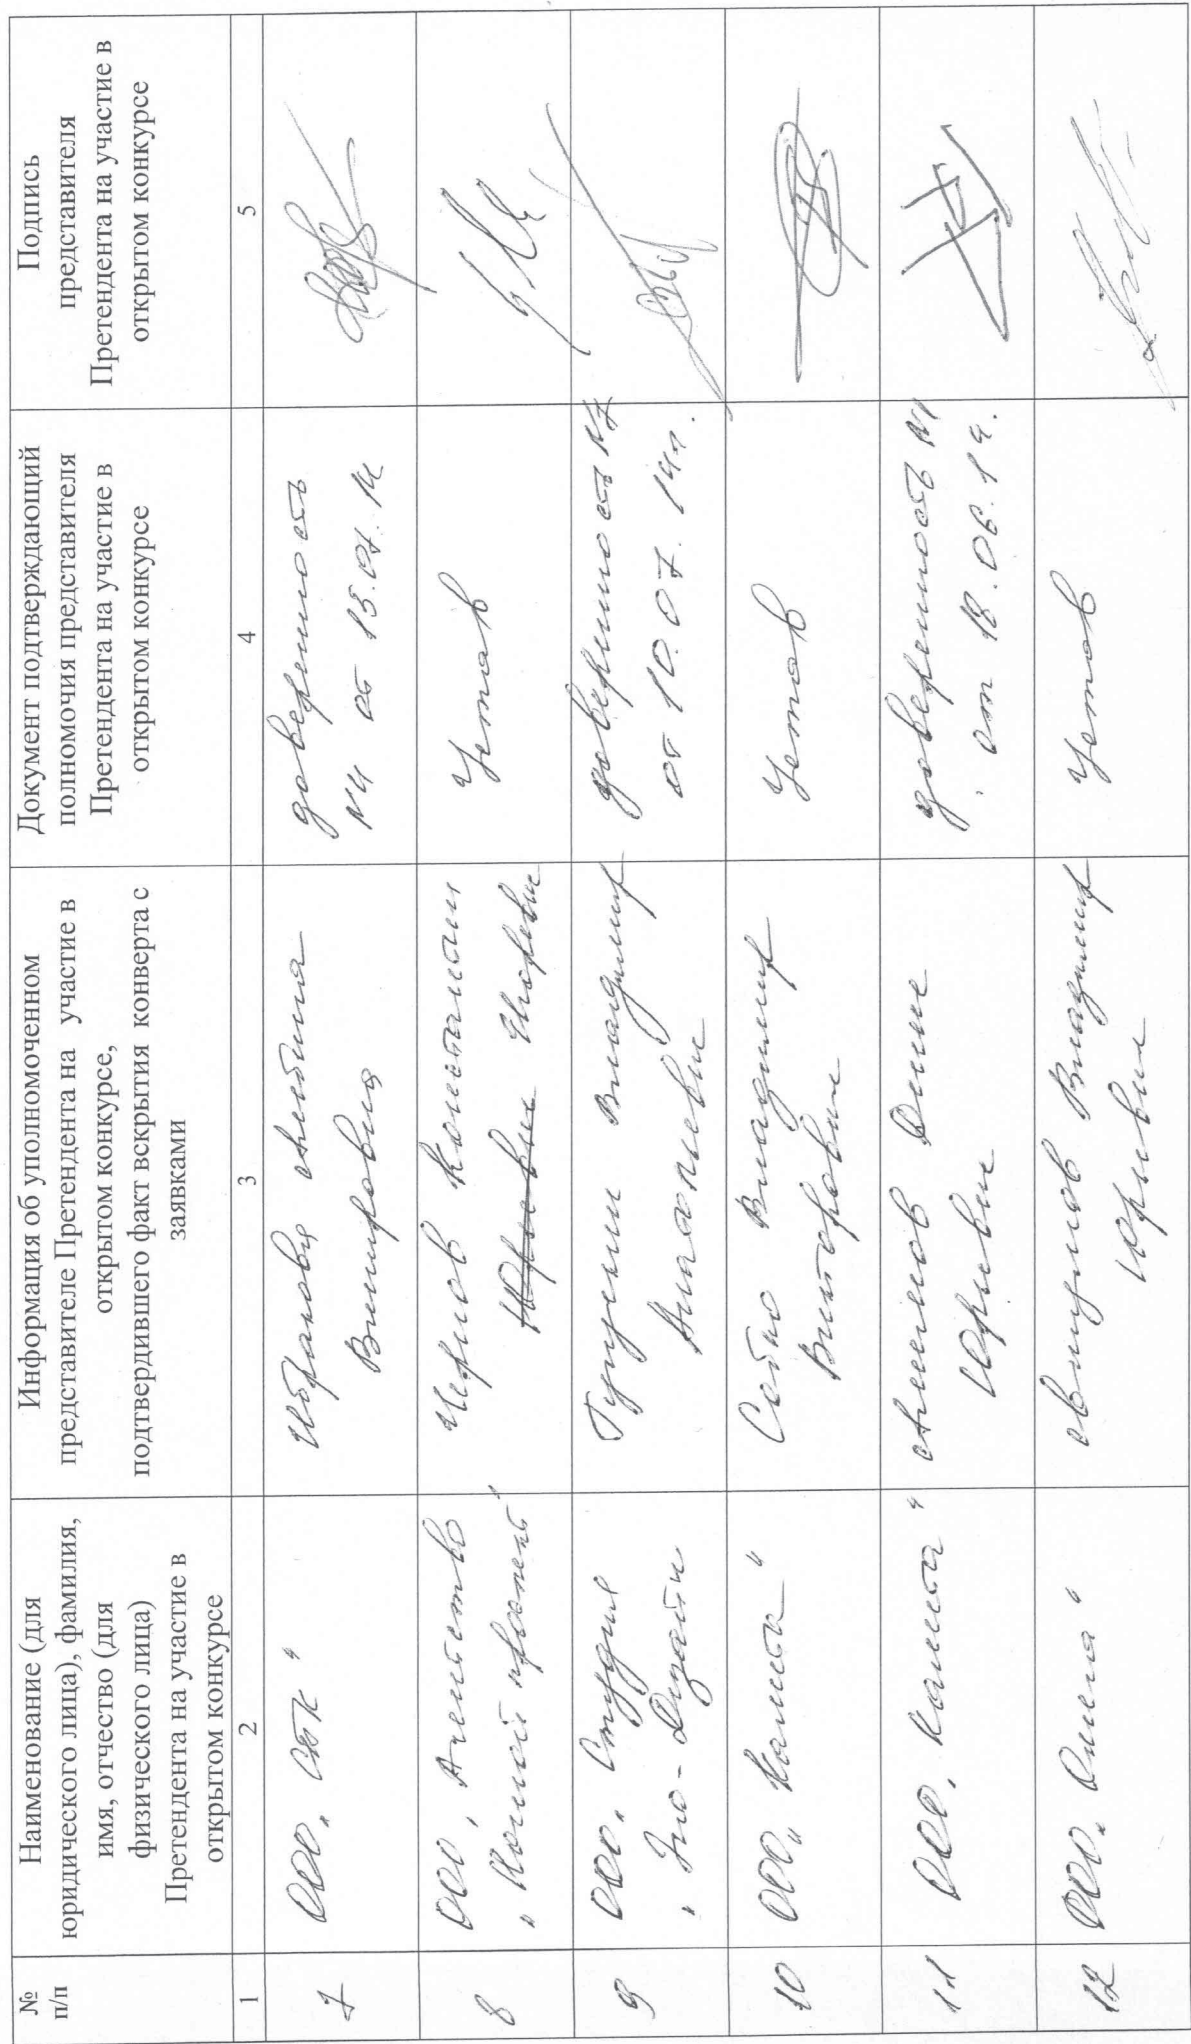 №
п/п
Наименование (для
юридического лица), фамилия,
имя, отчество (для
физического лица)
Претендента на участие в
открытом конкурсе
Информация об уполномоченном
представителе Претендента на участие в
открытом конкурсе,
подтвердившего факт вскрытия конверта с
заявками
Документ подтверждающий
полномочия представителя
Претендента на участие в
открытом конкурсе
Подпись
представителя
Претендента на участие в
открытом конкурсе
1
2
3
4
5
7
ООО "
Альбина
доверенность
№1 от 15.07.14
8
ООО "Агентство
Чернов Константин
Юрьевич Игоревич
Устав
9
ООО "Студия
" Эко-Дизайн
Владимир
Анатольевич
доверенность №7
от 10.07.14г.
10
ООО "Комета"
Владимир
Викторович
Устав
11
ООО "Комета"
Денис
Юрьевич
доверенность №1
от 18.06.14.
12
ООО "Омега"
Владимир
Юрьевич
Устав